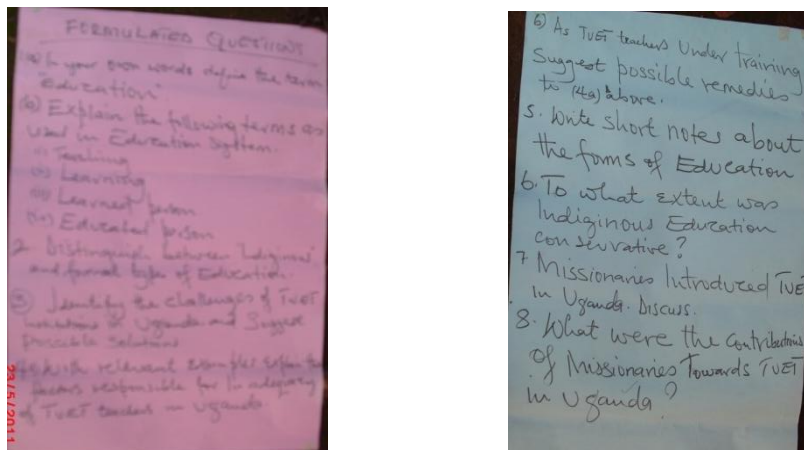 FORMULATED QUESTIONS
1(a) In your own words define the term
Education.
(b) Explain the following terms as
used in Education System.
(i) Teaching
(ii) Learning
(iii) Learned person
(iv) Educated person
2. Distinguish between Indiginous
and formal types of Education.
3 Identify the challenges of TVET
Institutions in Uganda and Suggest
possible solutions
4(a) With relevant Examples explain the
factors responsible for in adequacy
of TVET teachers in Uganda.
23/5/2011
b) As TVET teachers Under training
Suggest possible remedies
to (4a) above.
5. Write short notes about
the forms of Education
6. To what extent was
Indiginous Education
conservative?
7 Missionaries Introduced TVE
in Uganda. Discuss.
8. What were the contributions
of Missionaries Towards TVET
in Uganda?